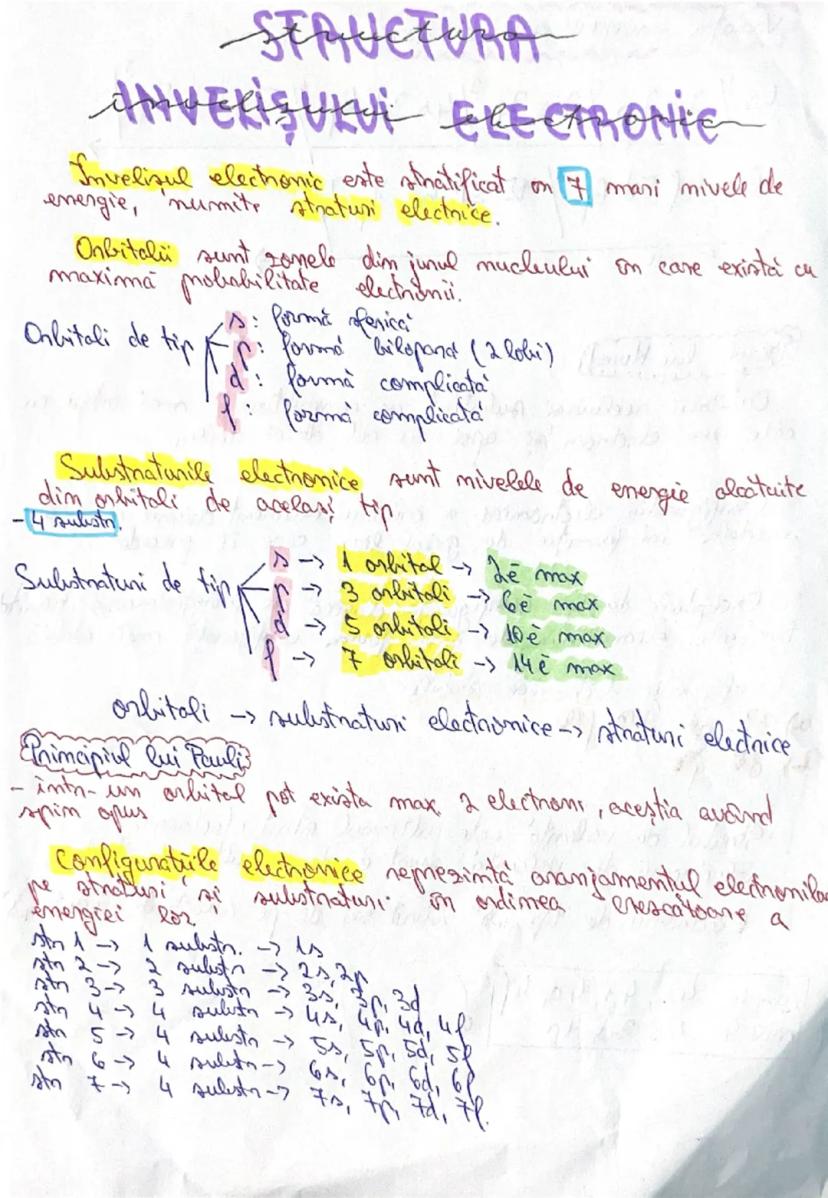 STRUCTURA
ÎNVELIŞULUI ELECTRONIC
Învelişul electronic este stratificat în 7 mari nivele de
energie, numite straturi electrice.
Orbitalii sunt zonele din jurul nucleului în care există cu
maximă probabilitate electronii.
Orbitali de tip
s: formă sferică
p: formă bilopară (2 lobi)
d: formă complicată
f: formă complicată
Substraturile electronice sunt nivelele de energie alcătuite
din orbitali de acelaşi tip
- 4 substr.
Substraturi de tip
s → 1 orbital → 2ē max
p → 3 orbitali → 6ē max
d → 5 orbitali → 10ē max
f → 7 orbitali → 14ē max
orbitali → substraturi electronice → straturi electrice
Principiul lui Pauli
- într-un orbital pot exista max 2 electroni, aceştia având
spin opus
Configuraţiile electronice reprezintă aranjamentul electronilor
pe straturi şi substraturi în ordinea crescătoare a
energiei lor
str 1 → 1 substr. → 1s
str 2 → 2 substr → 2s, 2p
str 3 → 3 substr → 3s, 3p, 3d
str 4 → 4 substr → 4s, 4p, 4d, 4f
str 5 → 4 substr → 5s, 5p, 5d, 5f
str 6 → 4 substr → 6s, 6p, 6d, 6f
str 7 → 4 substr → 7s, 7p, 7d, 7f.